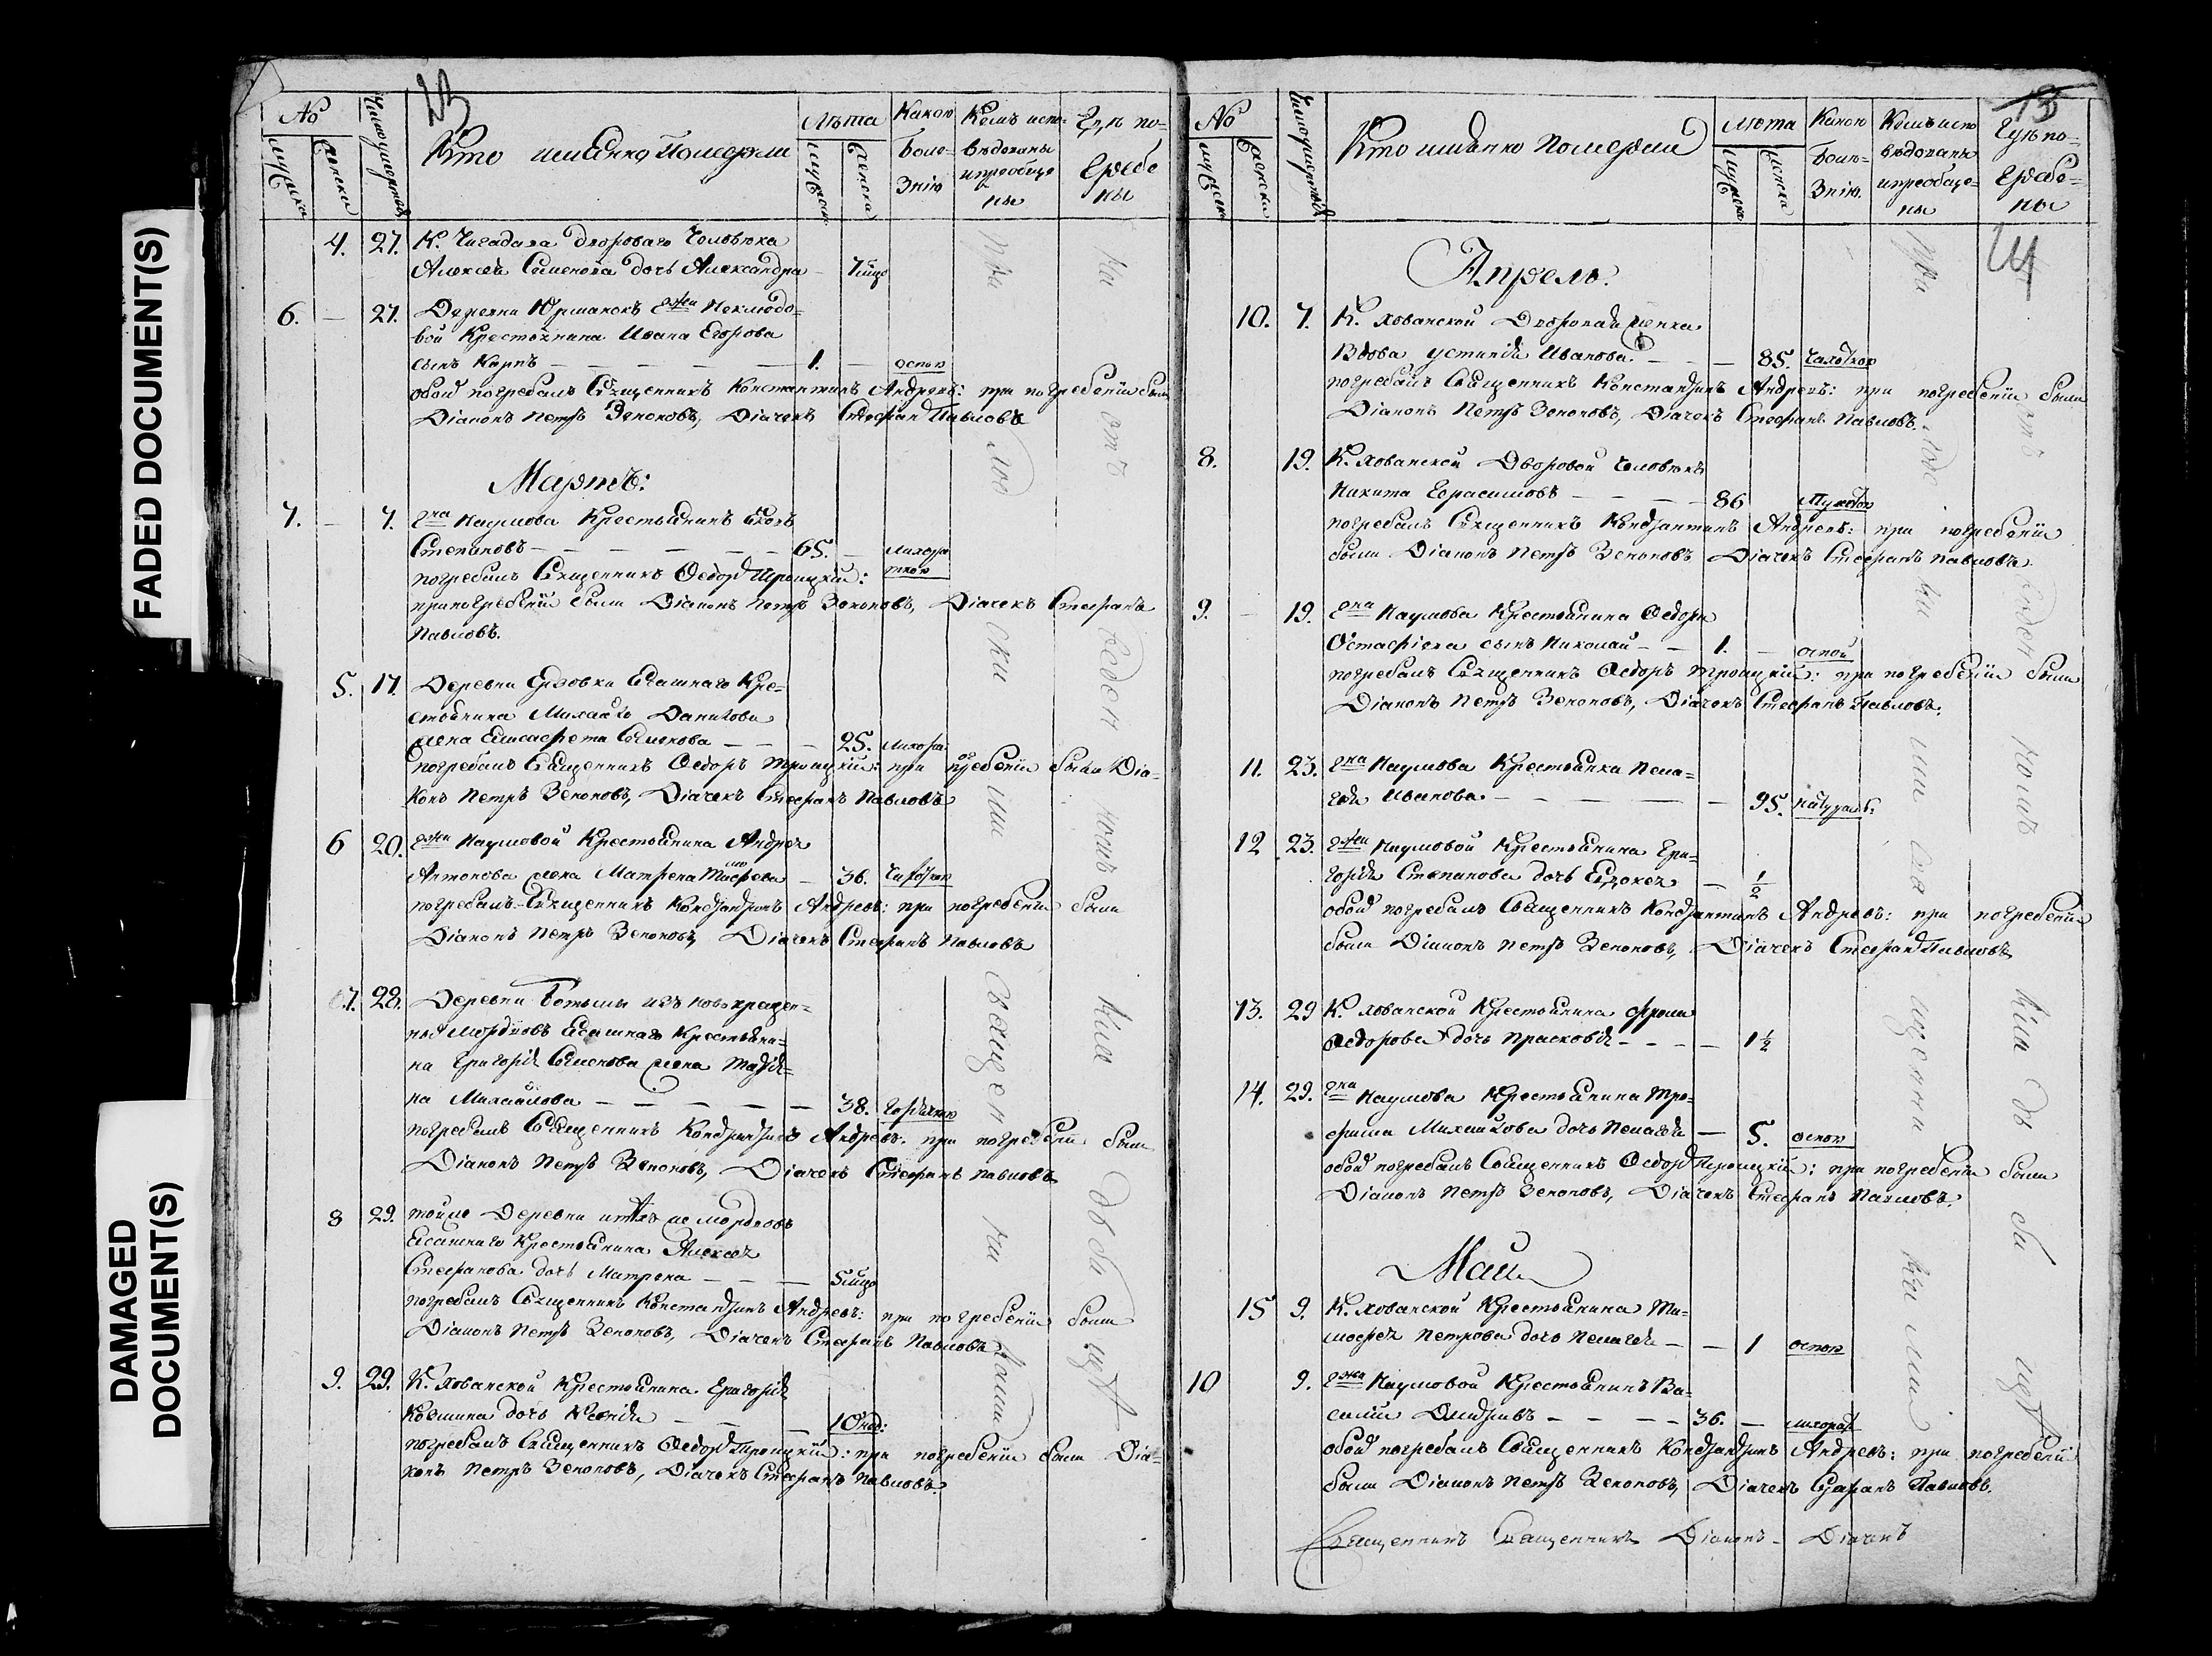 FADED DOCUMENT(S)
DAMAGED
DOCUMENT(S)
№
мужеска
женска
Число умертвій
Кто имянно Померли
Лѣта
мужеска
женска
Какою
Боле-
знію
Кемъ испо-
вѣдованы
и пріобще
ны
Гдѣ по-
гребе
ны
4. 27. К. Чигадала дворового Человѣка
Алексея Семенова дочь Александра —
6. — 27. Деревни Юрманокъ Гжи Неклюдо-
вой Крестьянина Ивана Егорова
сынъ Карпъ — — — — — 1. — оспою
обоих погребалъ Священникъ Константинъ Андреевъ: при погребеніи были
Діаконъ Петръ Зеноновъ, Діачекъ Стефанъ Павловъ
Мартъ:
7. — 7. Гна Наумова Крестьянинъ
Степановъ — — — — — 65. — лихора
ткою
погребалъ Священникъ Федоръ Троицкій:
при погребеніи были Діаконъ Петръ Зеноновъ, Діачекъ Стефанъ
Павловъ.
5. 17. Деревни Ерзовки Ясашнаго Кре-
стьянина Михаила Данилова
жена Елисафета Семенова — — — 25. лихора:
погребалъ Священникъ Федоръ Троицкій: при погребеніи были Діа-
конъ Петръ Зеноновъ, Діачекъ Стефанъ Павловъ
6 20. Гжи Наумовой Крестьянина Андрея
Антонова жена Матрена — 36.
погребалъ Священникъ Константинъ Андреевъ: при погребеніи были
Діаконъ Петръ Зеноновъ, Діачекъ Стефанъ Павловъ
7. 28. Деревни Ботьмы изъ новокрещен-
ныхъ Мордвовъ Ясашнаго Крестьяни-
на Григорія Семенова жена Татія-
на Михайлова — — — — — 38. горячкою
погребалъ Священникъ Константинъ Андреевъ: при погребеніи были
Діаконъ Петръ Зеноновъ, Діачекъ Стефанъ Павловъ
8 29. той же Деревни изъ тѣхъ же Мордвовъ
Ясашнаго Крестьянина Алексея
Стефанова дочь Матрена — — —
погребалъ Священникъ Константинъ Андреевъ: при погребеніи были
Діаконъ Петръ Зеноновъ, Діачекъ Стефанъ Павловъ
9. 29. К. Хованской Крестьянина Григорія
Козмина дочь — — — 10 нед:
погребалъ Священникъ Федоръ Троицкій: при погребеніи были Діа-
конъ Петръ Зеноновъ, Діачекъ Стефанъ Павловъ.
13
№
мужеска
женска
Число умертвій
Кто имянно Померли
Лѣта
мужеска
женска
Какою
Боле-
знію.
Кемъ испо
вѣдованы
и пріобще-
ны
Гдѣ по-
гребе-
ны
Апрель:
10. 7. К. Хованской Дворовая женка
Вдова Устинія Иванова. — — — 85. чахоткою
погребалъ Священникъ Константинъ Андреевъ: при погребеніи были
Діаконъ Петръ Зеноновъ, Діачекъ Стефанъ Павловъ.
8. 19. К. Хованской Дворовой человѣкъ
Никита Герасимовъ — — — — 86
погребалъ Священникъ Константинъ Андреевъ: при погребеніи
были Діаконъ Петръ Зеноновъ Діачекъ Стефанъ Павловъ.
9. — 19. Гна Наумова Крестьянина Федора
Остафіева сынъ Николай — — 1. — оспой
погребалъ Священникъ Федоръ Троицкій: при погребеніи были
Діаконъ Петръ Зеноновъ, Діачекъ Стефанъ Павловъ.
11. 23. Гна Наумова Крестьянка Пела-
гея Иванова. — — — — — 95. натураль:
12 23. Гжи Наумовой Крестьянина Гри-
горія Степанова дочь Евдокея — ½
обоих погребалъ Священникъ Константинъ Андреевъ: при погребеніи
были Діаконъ Петръ Зеноновъ, Діачекъ Стефанъ Павловъ
13. 29 К. Хованской Крестьянина Фрола
Федорова дочь Прасковія — — — — 1½
14. 29. Гна Наумова Крестьянина Тро-
фима Михайлова дочь Пелагея — 5. оспою
обоих погребалъ Священникъ Федоръ Троицкій: при погребеніи были
Діаконъ Петръ Зеноновъ, Діачекъ Стефанъ Павловъ.
Маій
15 9. К. Хованской Крестьянина Ти-
мофея Петрова дочь Пелагея — — 1 оспою
10 9. Гжи Наумовой Крестьянинъ Ва-
силій Дмитріевъ — — — — 36. — лихорат
обоих погребалъ Священникъ Константинъ Андреевъ: при погребеніи
были Діаконъ Петръ Зеноновъ, Діачекъ Стефанъ Павловъ.
Священникъ Священникъ Діаконъ — Діачекъ